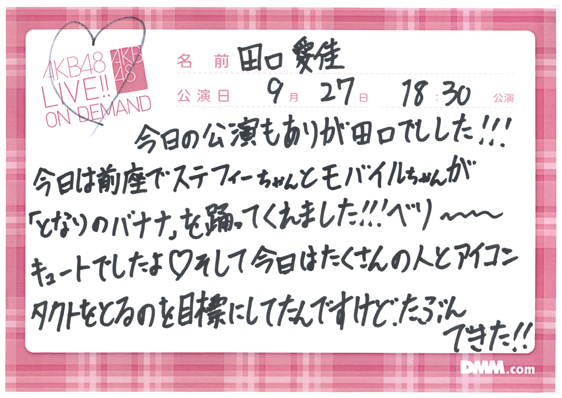 AKB48
LIVE!!
ON DEMAND
AKB
48
名前 田口愛佳
公演日 9月27日 18:30公演
今日の公演もありが田口でしした!!!
今日は前座でステフィーちゃんとモバイルちゃんが
「となりのバナナ」を踊ってくれました!!!ベリ〜〜
キュートでしたよ♡そして今日はたくさんの人とアイコン
タクトをとるのを目標にしてたんですけど、たぶん
できた!!
DMM.com